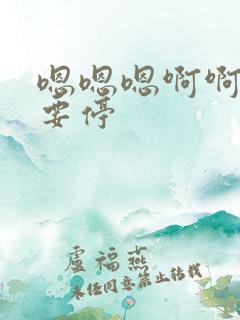 嗯嗯嗯啊啊
要停
盧福燕
未经同意禁止转载